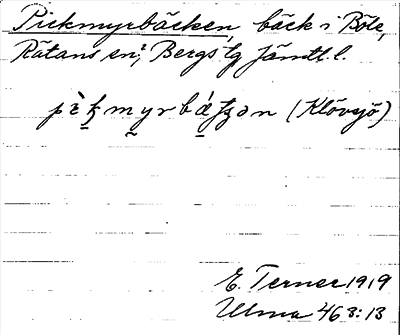 Pickmyrbäcken, bäck i Böle,
Rätans sn, Bergs tg Jämtl. l.
(Klövsjö)
E. Terner 1919
Ulma 463:13